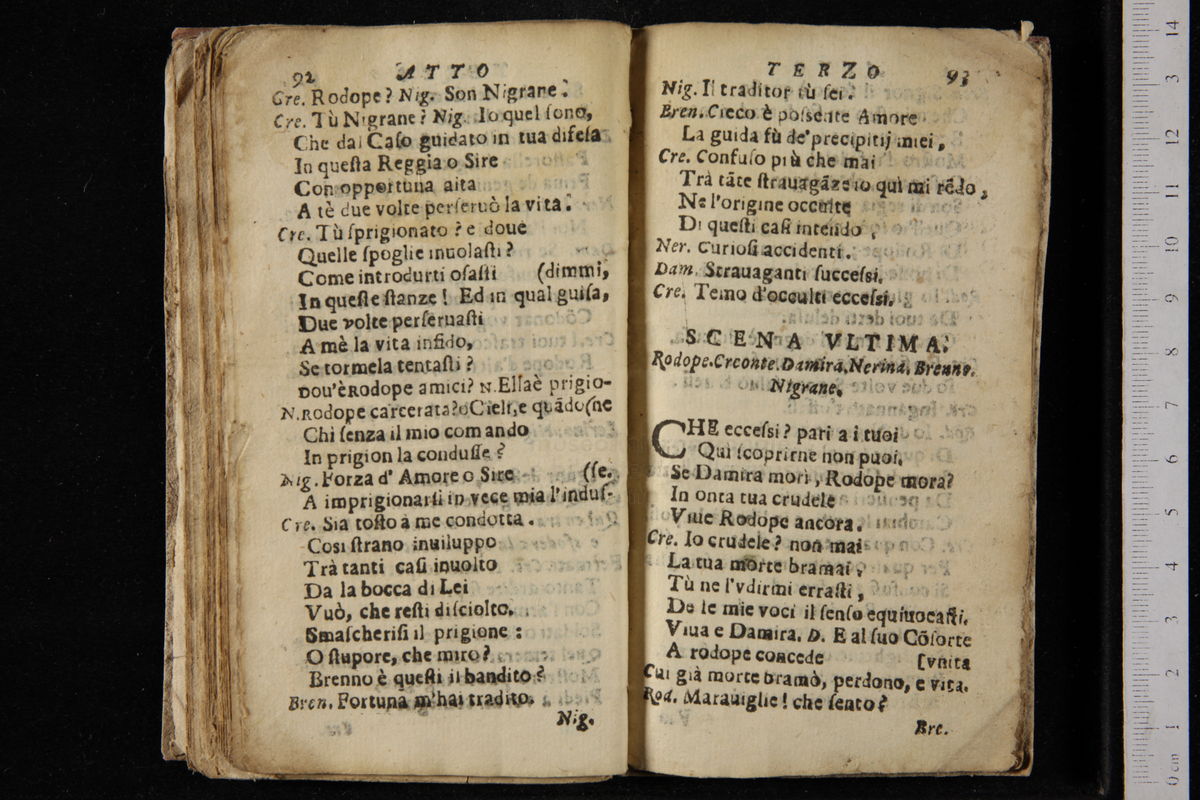 92 ATTO
Cre. Rodope? Nig. Son Nigrane.
Cre. Tù Nigrane? Nig. Io quel ſono,
Che dal Caſo guidato in tua difeſa
In queſta Reggia o Sire
Con opportuna aita
A tè due volte perſeruò la vita.
Cre. Tù ſprigionato? e doue
Quelle ſpoglie inuolaſti?
Come introdurti oſaſti (dimmi,
In queſte ſtanze! Ed in qual guiſa,
Due volte perſeruaſti
A mè la vita infido,
Se tormela tentaſti?
Dou'è Rodope amici? N. Ella è prigio-
N. Rodope carcerata? o Cieli, e quãdo (ne
Chi ſenza il mio comando
In prigion la conduſſe?
Nig. Forza d' Amore o Sire (ſe.
A imprigionarſi in vece mia l'induſ-
Cre. Sia toſto à me condotta.
Coſi ſtrano inuiluppo
Trà tanti caſi inuolto
Da la bocca di Lei
Vuò, che reſti diſciolto.
Smaſcheriſi il prigione:
O ſtupore, che miro?
Brenno è queſti il bandito?
Bren. Fortuna m'hai tradito.
Nig.
TERZO 93
Nig. Il traditor tù ſei.
Bren. Cieco è poſſente Amore
La guida fù de' precipitij miei,
Cre. Confuſo più che mai
Trà tãte ſtrauagãze io quì mi rẽdo,
Ne l'origine occulte
Di queſti caſi intendo,
Ner. Curioſi accidenti.
Dam. Strauaganti ſucceſsi.
Cre. Temo d'occulti ecceſsi.
SCENA VLTIMA.
Rodope. Creonte. Damira. Nerina. Brenno.
Nigrane.
CHE ecceſsi? pari a i tuoi
Quì ſcoprirne non puoi.
Se Damira morì, Rodope mora?
In onta tua crudele
Viue Rodope ancora.
Cre. Io crudele? non mai
La tua morte bramai,
Tù ne l'vdirmi erraſti,
De le mie voci il ſenſo equiuocaſti.
Viua e Damira. D. E al ſuo Cõſorte
A rodope concede [vnita
Cui già morte bramò, perdono, e vita.
Rod. Marauiglie! che ſento?
Bre.